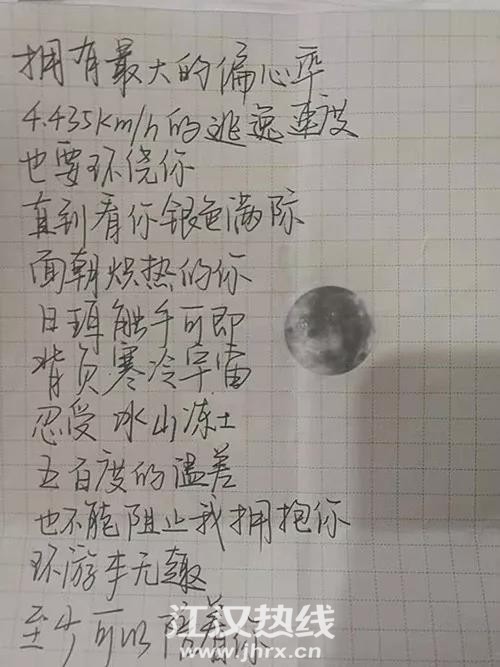 拥有最大的偏心率
4.435Km/h的逃逸速度
也要环绕你
直到看你银色满际
面朝炽热的你
日珥触手可即
背负寒冷宇宙
忍受冰山冻土
五百度的温差
也不能阻止我拥抱你
环游无趣
至少可以陪着你
江汉热线
www.jhrx.cn